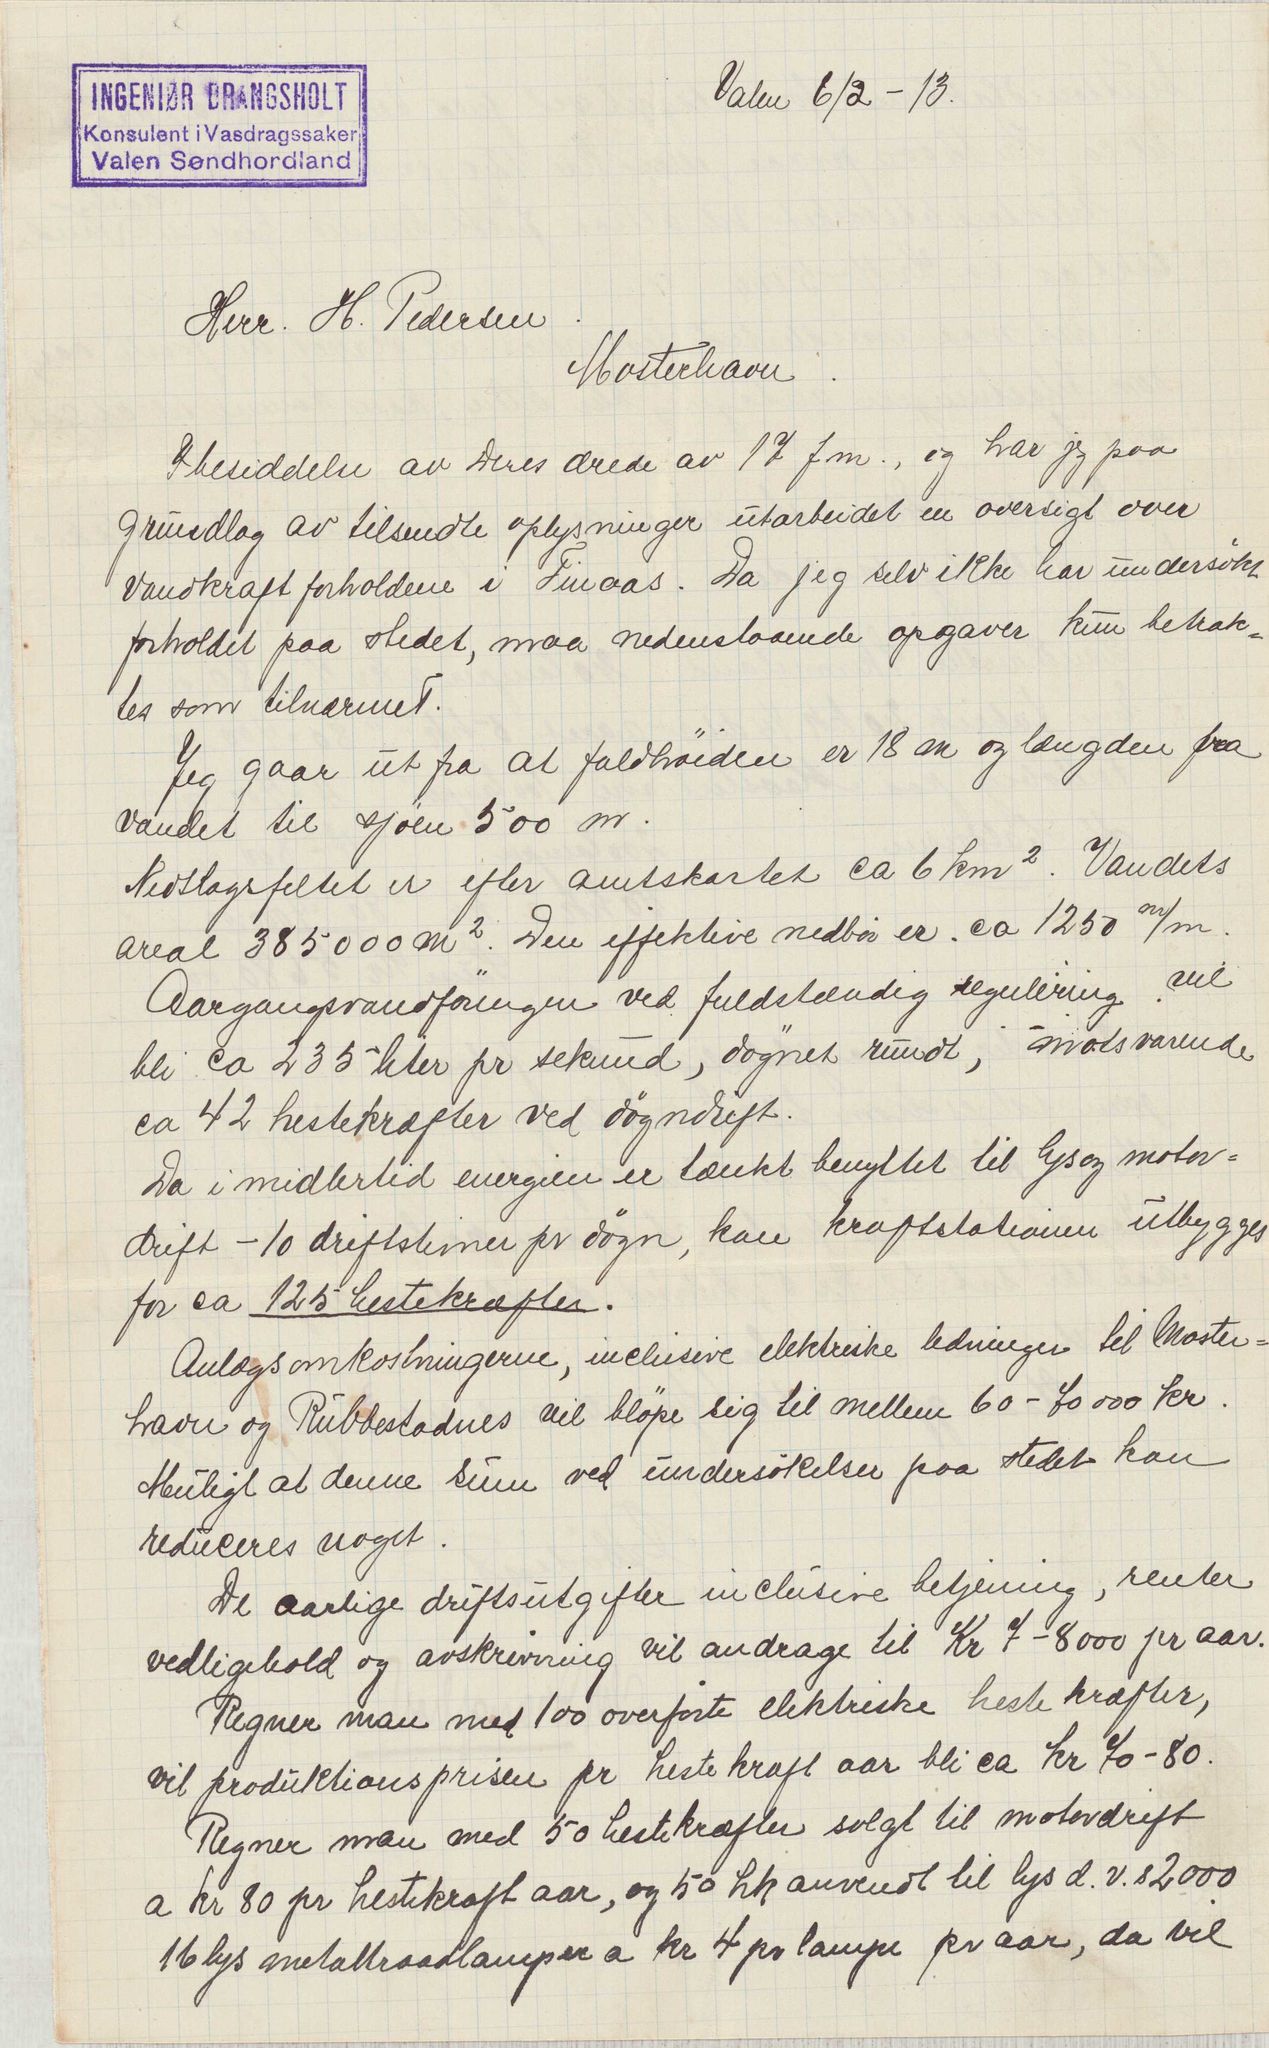 INGENIØR DRANGSHOLT
Konsulent i Vasdragssaker
Valen Søndhordland
Valen 6/2 - 13.
Herr. H. Pedersen.
Mosterhavn.
I besiddelse av Deres ærede av 17 f m., og har jeg paa
grundlag av tilsendte oplysninger utarbeidet en oversigt over
vandkraftforholdene i Finaas. Da jeg selv ikke har undersökt
forholdet paa stedet, maa nedenstaaende opgaver kun betrak=
tes som tilnærmet.
Jeg gaar ut fra at faldhöiden er 18 m og længden fra
vandet til sjöen 500 m.
Nedslagsfeltet er efter amtskartet ca 6 km². Vandets
areal 385000 m². Den effektive nedbör er ca 1250 m/m.
Aargangsvandföringen ved fuldstændig regulering vil
bli ca 235 liter pr sekund, dögnet rundt, motsvarende
ca 42 hestekræfter ved dögndrift.
Da imidlertid energien er tænkt benyttet til lys og motor=
drift - 10 driftstimer pr dögn, kan kraftstationen utbygges
for ca 125 hestekræfter.
Anlægsomkostningerne, inclusive elektriske ledninger til Moster=
havn og Rubbestadnes vil blöpe sig til mellem 60 - 70 000 kr.
Muligt at denne sum ved undersökelser paa stedet kan
reduceres noget.
De aarlige driftsutgifter inclusive betjening, renter
vedligehold og avskrivning vil andrage til Kr 7 - 8000 pr aar.
Regner man med 100 overförte elektriske hestekræfter,
vil produktionsprisen pr hestekraft aar bli ca kr 70 - 80.
Regner man med 50 hestekræfter solgt til motordrift
a kr 80 pr hestekraft aar, og 50 hk anvendt til lys d. v. s 2000
16 lys metaltraadlamper a kr 4 pr lampe pr aar, da vil